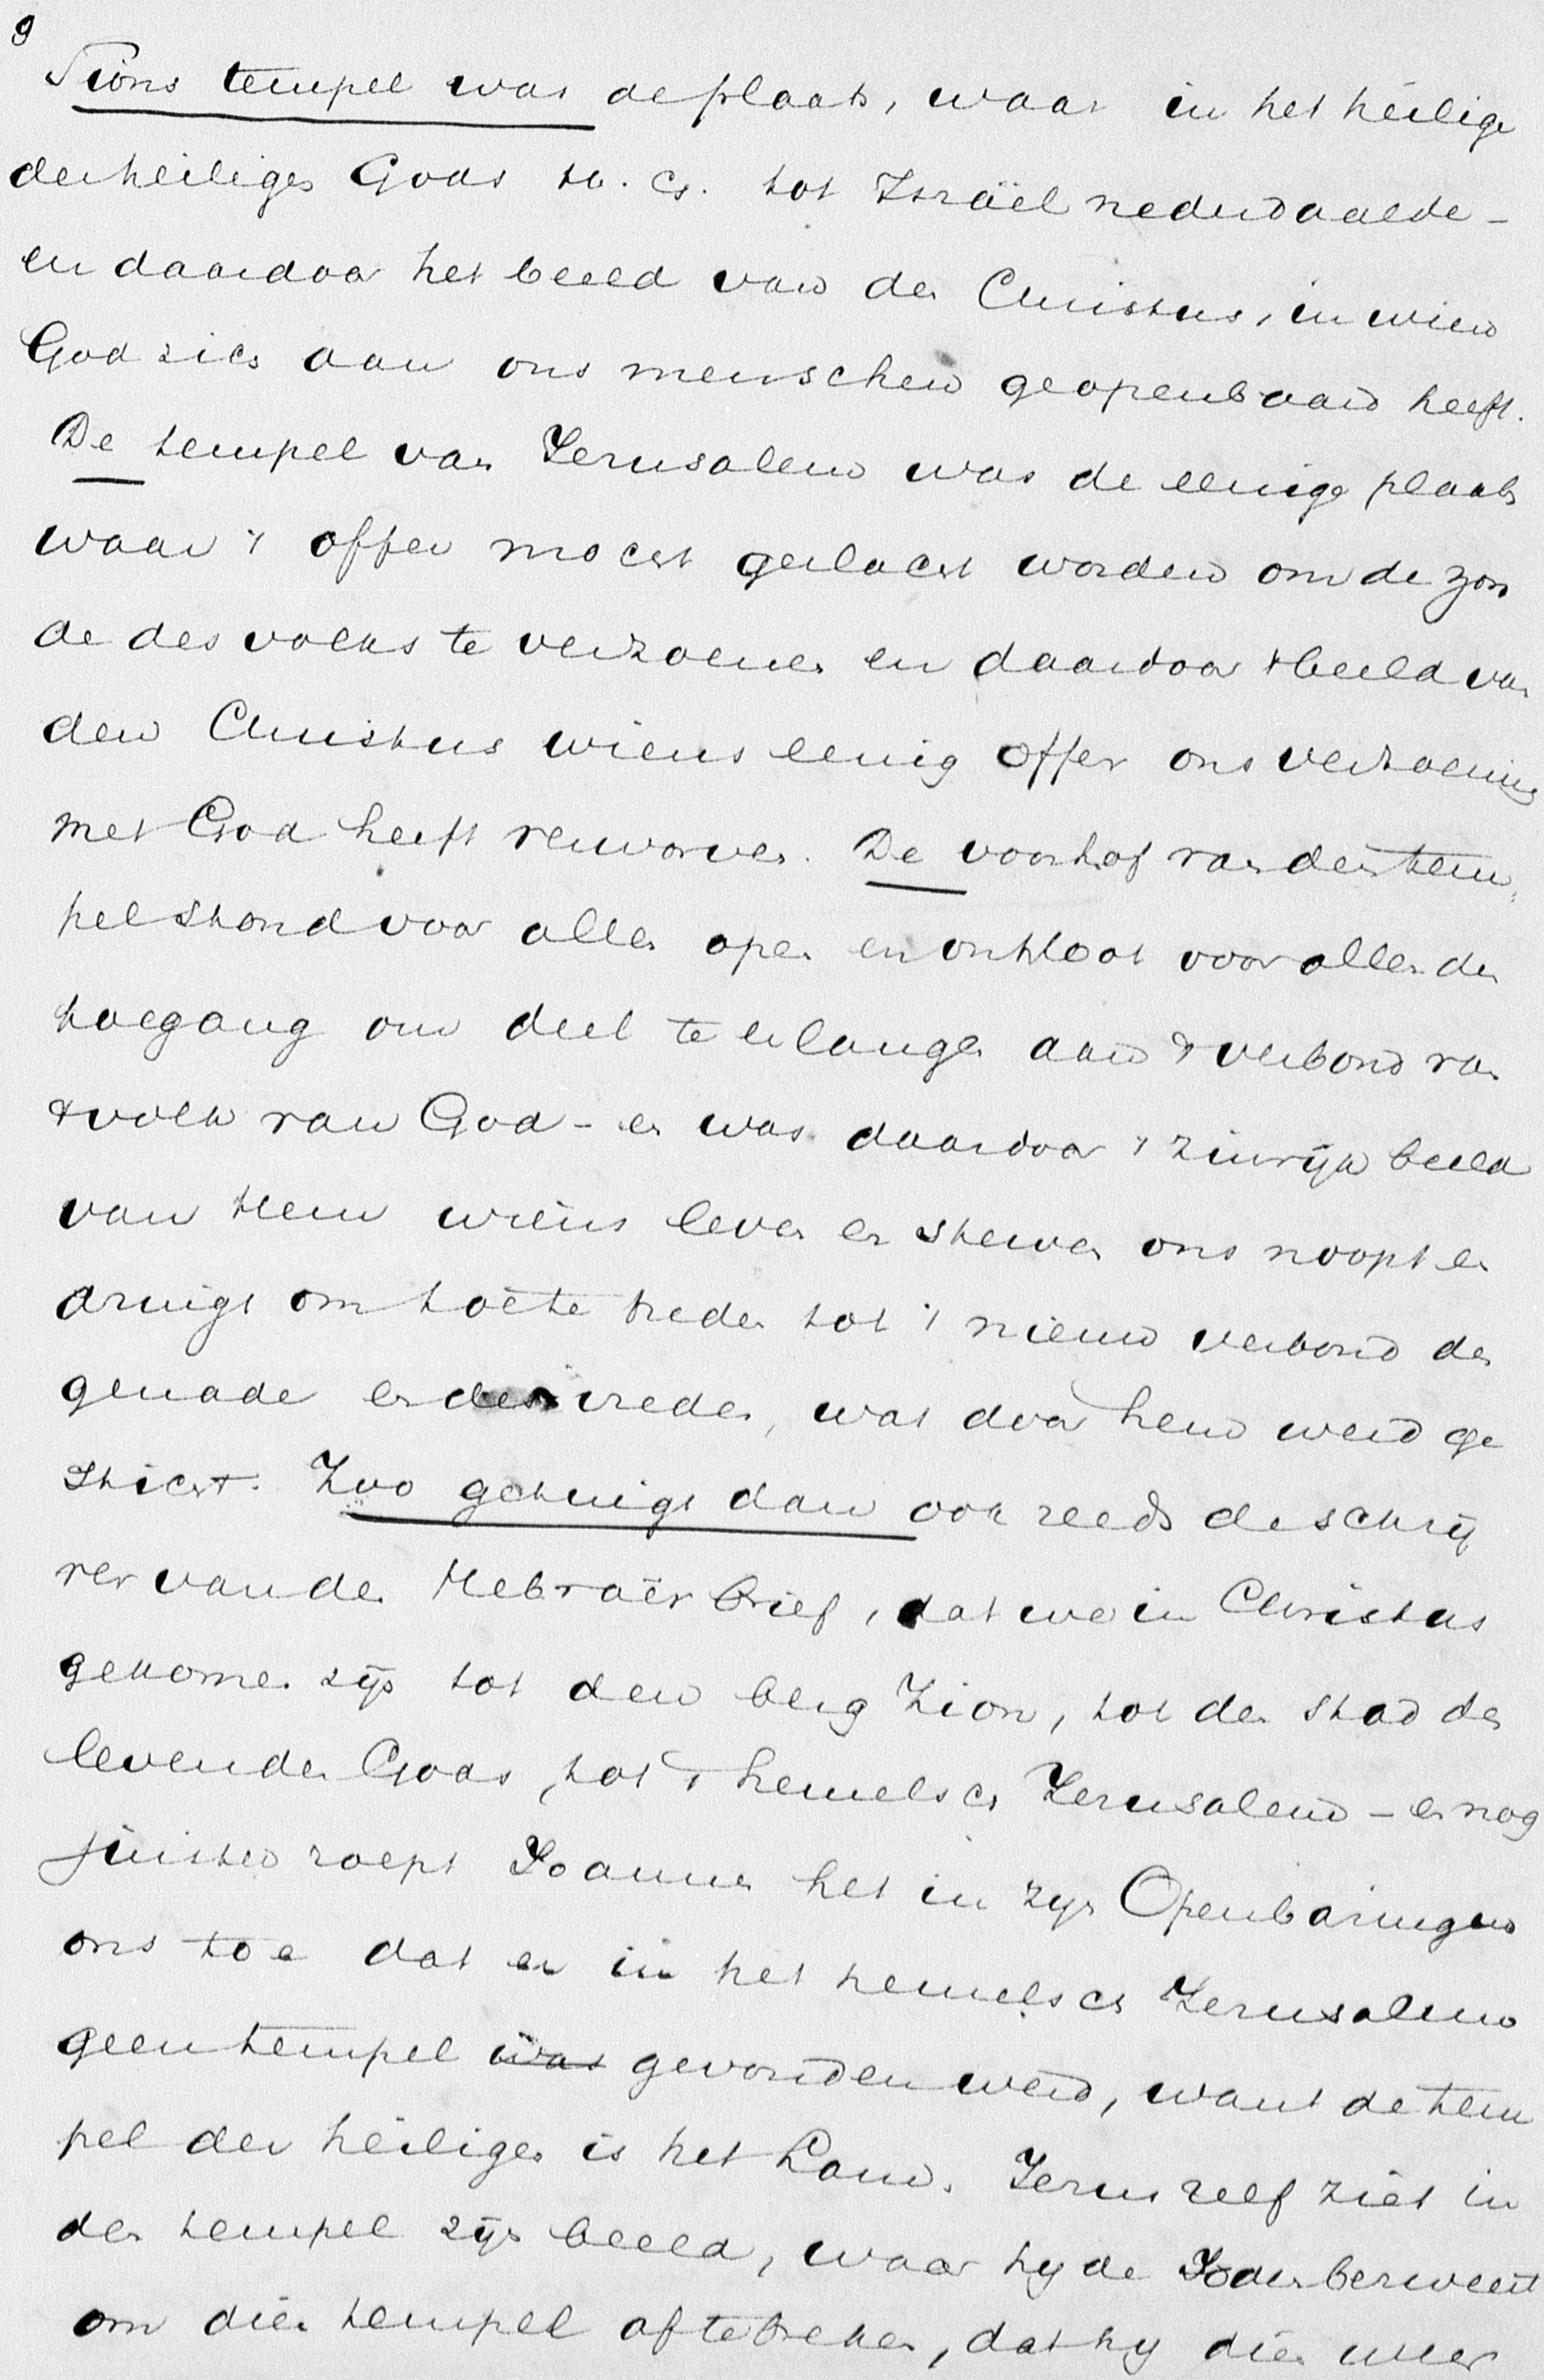 9
Sions tempel was de plaats, waar in het heilige
der heiligen Gods h. g. tot Israël nederdaalde -
en daardoor het beeld van den Christus, in wien
God zich aan ons menschen geopenbaard heeft.
De tempel van Jerusalem was de eenige plaats
waar 't offer mocht geslacht worden om de zon
de des volks te verzoenen en daardoor 't beeld van
den Christus wiens eenig offer ons verzoening
met God heeft verworven. De voorhof van den tem
pel stond voor allen open en ontsloot voor allen den
toegang om deel te erlangen aan 't verbond van
't volk van God - en was daardoor 't zinrijk beeld
van Hem wiens leven en sterven ons noopt en
dringt om toe te treden tot 't nieuw verbond der
genade en des vredes, wat door hem werd ge
sticht. Zoo getuigt dan ook reeds de schrij
ver van den Hebraër brief, dat we in Christus
gekomen zijn tot den berg Zion, tot de stad des
levenden Gods, tot 't hemelsch Jerusalem - en nog
juister roept Joannes het in zijn Openbaringen
ons toe dat er in het hemelsch Jerusalem
geen tempel was gevonden werd, want de tem
pel der heiligen is het Lam. Jezus zelf ziet in
den tempel zijn beeld, waar hij de Joden bezweert
om dien tempel af te breken, dat hij dien weer